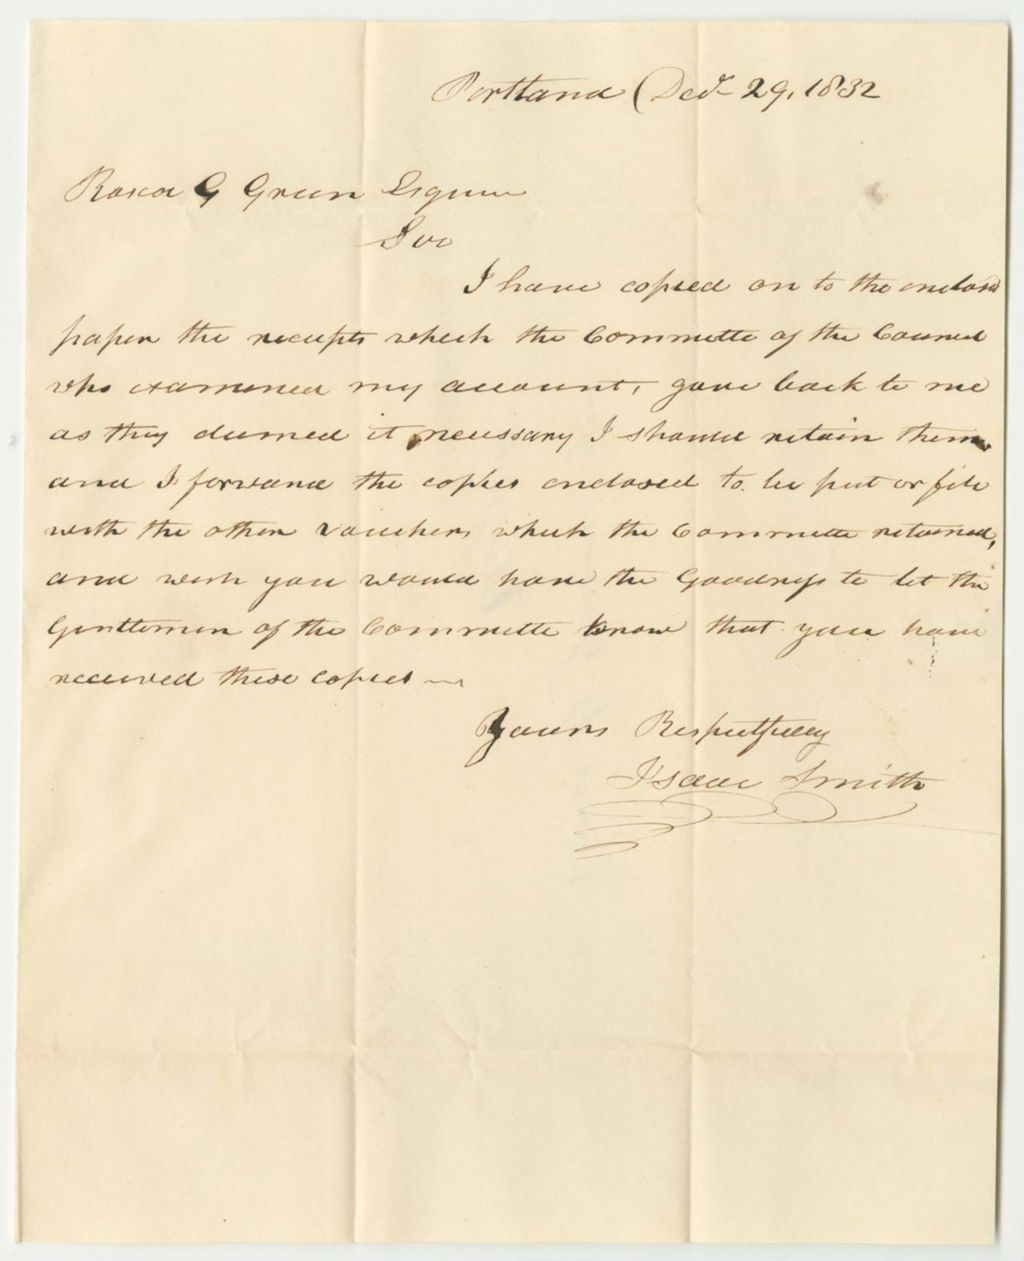 Portland Decr 29, 1832
Roscoe G Green Esquire
Sir
I have copied on to the enclosed
paper the receipts which the Committe of the Council
who examined my account, gave back to me
as they deemed it necessary I should retain them
and I forward the copies enclosed to be put or file
with the other vouchers which the Committe returned,
and wish you would have the Goodness to let the
Gentlemen of the Committe know that you have
received these copies
Yours Respectfully
Isaac Smith